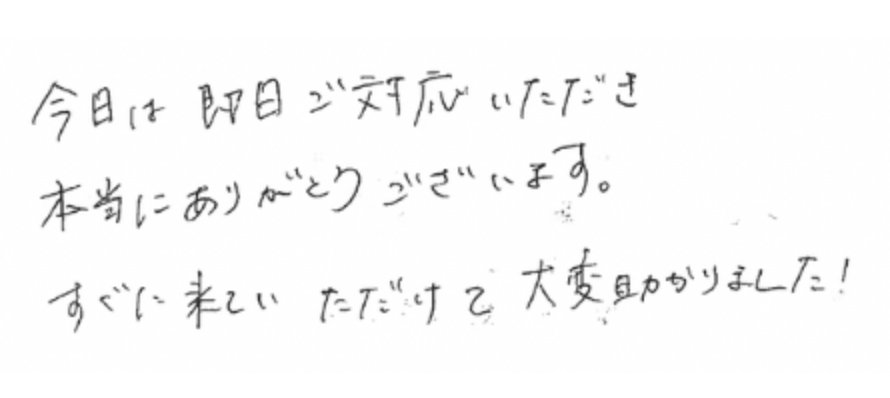 今日は即日ご対応いただき
本当にありがとうございます。
すぐに来ていただけて大変助かりました!